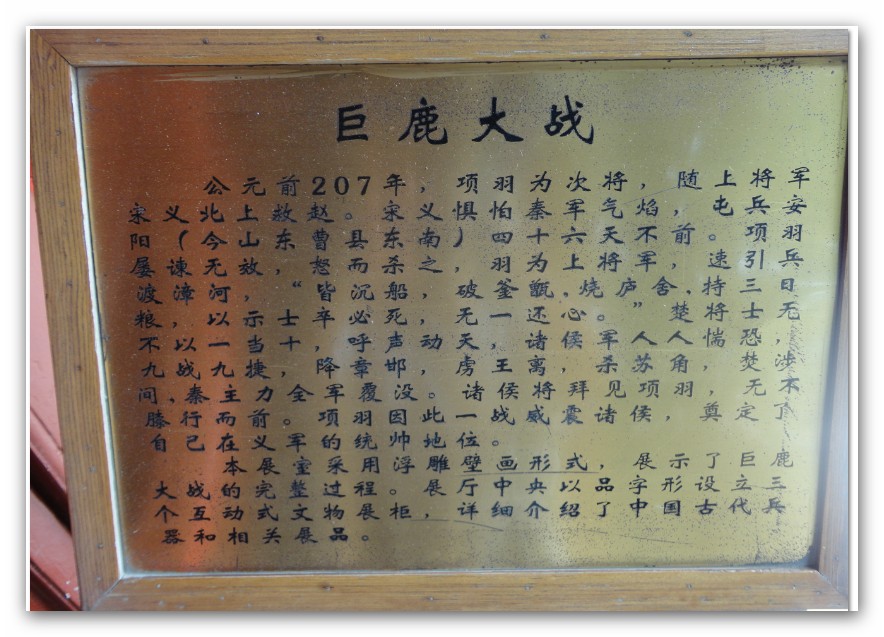 巨鹿大战
公元前207年，项羽为次将，随上将军
宋义北上救赵。宋义惧怕秦军气焰，屯兵安
阳（今山东曹县东南）四十六天不前。项羽
屡谏无效，怒而杀之，羽为上将军，速引兵
渡漳河，“皆沉船，破釜甑、烧庐舍、持三日
粮，以示士卒必死，无一还心。”楚将士无
不以一当十，呼声动天，诸侯军人人惴恐，
九战九捷，降章邯，虏王离，杀苏角，焚涉
间、秦主力全军覆没。诸侯将拜见项羽，无不
膝行而前。项羽因此一战威震诸侯，奠定了
自己在义军的统帅地位。
本展室采用浮雕壁画形式，展示了巨鹿
大战的完整过程。展厅中央以品字形设立三
个互动式文物展柜，详细介绍了中国古代兵
器和相关展品。